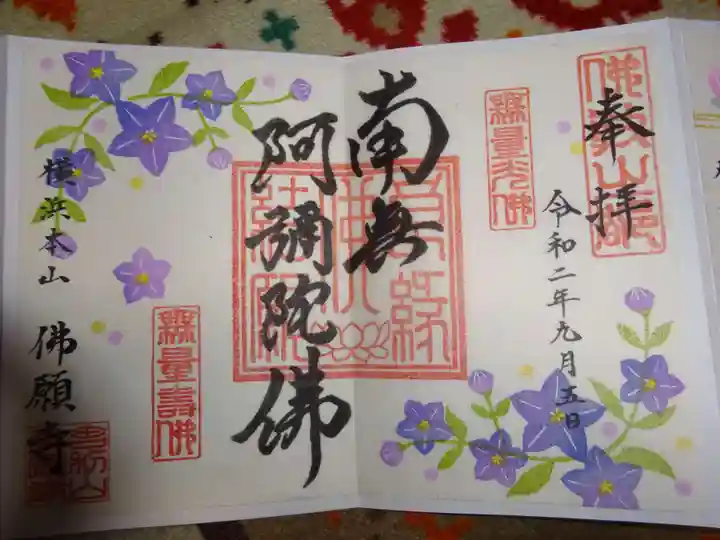 奉拝
令和二年九月五日
無量光佛
南無
阿彌陀佛
無量壽佛
横浜本山 佛願寺